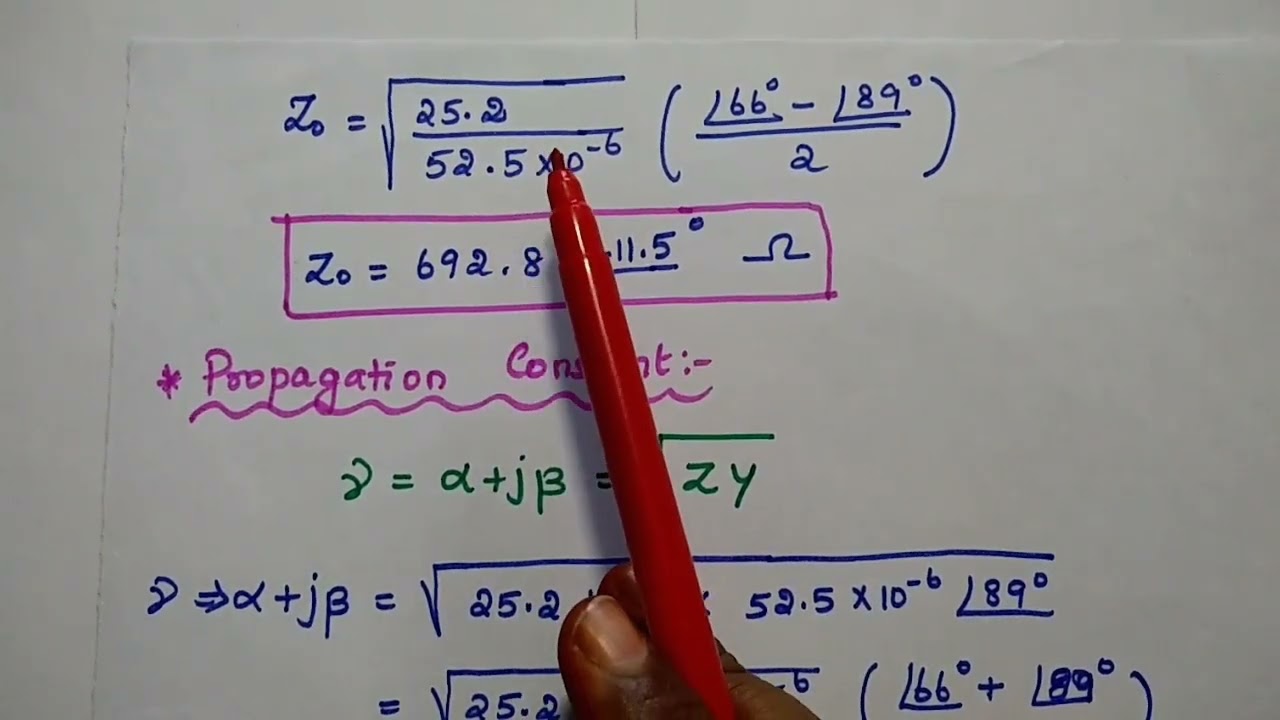 Z₀ = √(25.2 / 52.5×10⁻⁶) ((∠66° − ∠89°) / 2)
Z₀ = 692.8 .11.5° Ω
* Propagation :-
γ = α+jβ = √ZY
γ ⇒ α+jβ = √ 25.2 52.5×10⁻⁶ ∠89°
= √ 25.2 ⁻⁶ (∠66° + ∠89°)